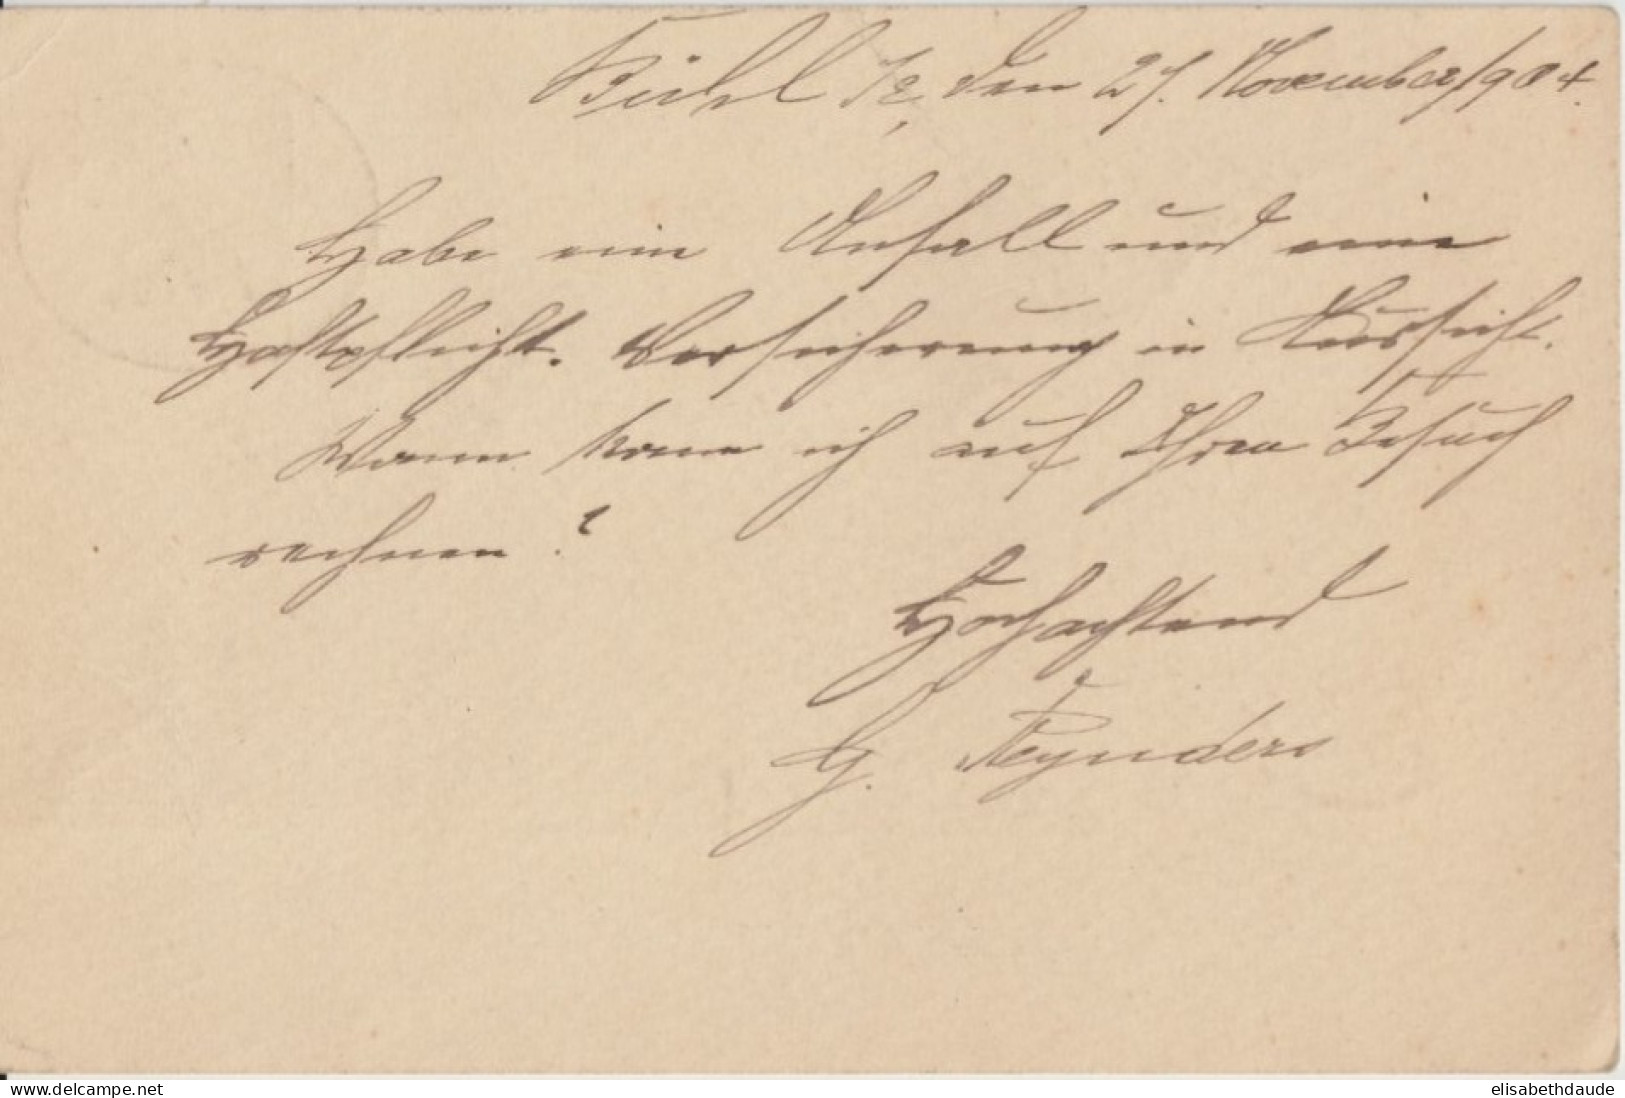 Bühl /E, den 27. November 1904.
Habe eine Unfall und eine
Haftpflicht. Versicherung in Aussicht.
Wann kann ich auf Ihren Besuch
rechnen?
Hochachtend
G. Reynders
www.delcampe.net
elisabethdaude